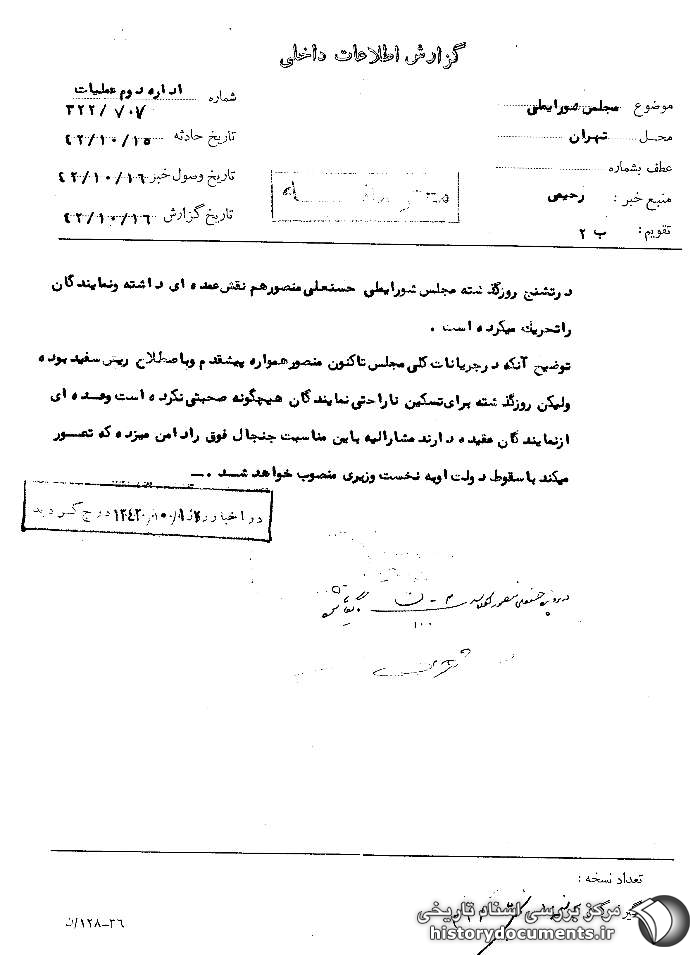 گزارش اطلاعات داخلی
موضوع مجلس شورایملی
محل تهران
عطف بشماره
منبع خبر : رحیمی
تقویم : ب ۲
اداره دوم عملیات
شماره ۳۲۲/۷۰۷
تاریخ حادثه ۴۲/۱۰/۱۵
تاریخ وصول خبر ۴۲/۱۰/۱۶
تاریخ گزارش ۴۲/۱۰/۱۶
در تشنج روز گذشته مجلس شورایملی حسنعلی منصور هم نقش عمده ای داشته و نمایندگان
را تحریک میکرده است .
توضیح آنکه در جریانات کلی مجلس تاکنون منصور همواره پیشقدم و باصطلاح ریش سفید بوده
ولیکن روز گذشته برای تسکین ناراحتی نمایندگان هیچگونه صحبتی نکرده است و عده ای
از نمایندگان عقیده دارند مشارالیه باین مناسبت جنجال فوق را دامن میزده که تصور
میکند با سقوط دولت او به نخست وزیری منصوب خواهد شد . ـــ
در اخبار روز ۱۳۴۲/۱۰/ درج گردید
در پرونده حسنعلی منصور
۱۰۰
تعداد نسخه :
۳۶–۱۲۸/ن
مرکز بررسی اسناد تاریخی
historydocuments.ir